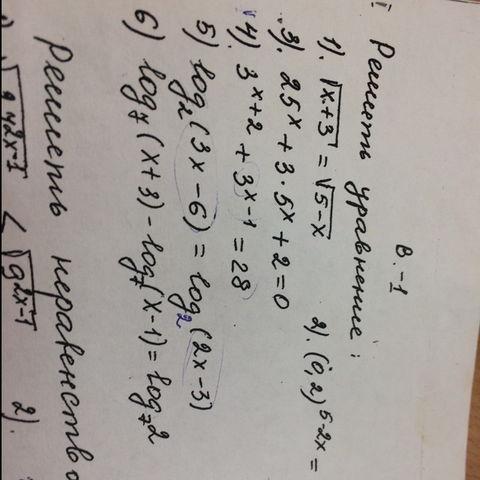 В.-1
Решить уравнение:
1). √x+3 = √5-x 2). (0,2)^5-2x =
3). 25^x + 3·5^x + 2 = 0
4). 3^x+2 + 3^x-1 = 28
5) log₂(3x-6) = log₂(2x-3)
6) log₇(x+3) - log₇(x-1) = log₇2
Решить неравенство
2).